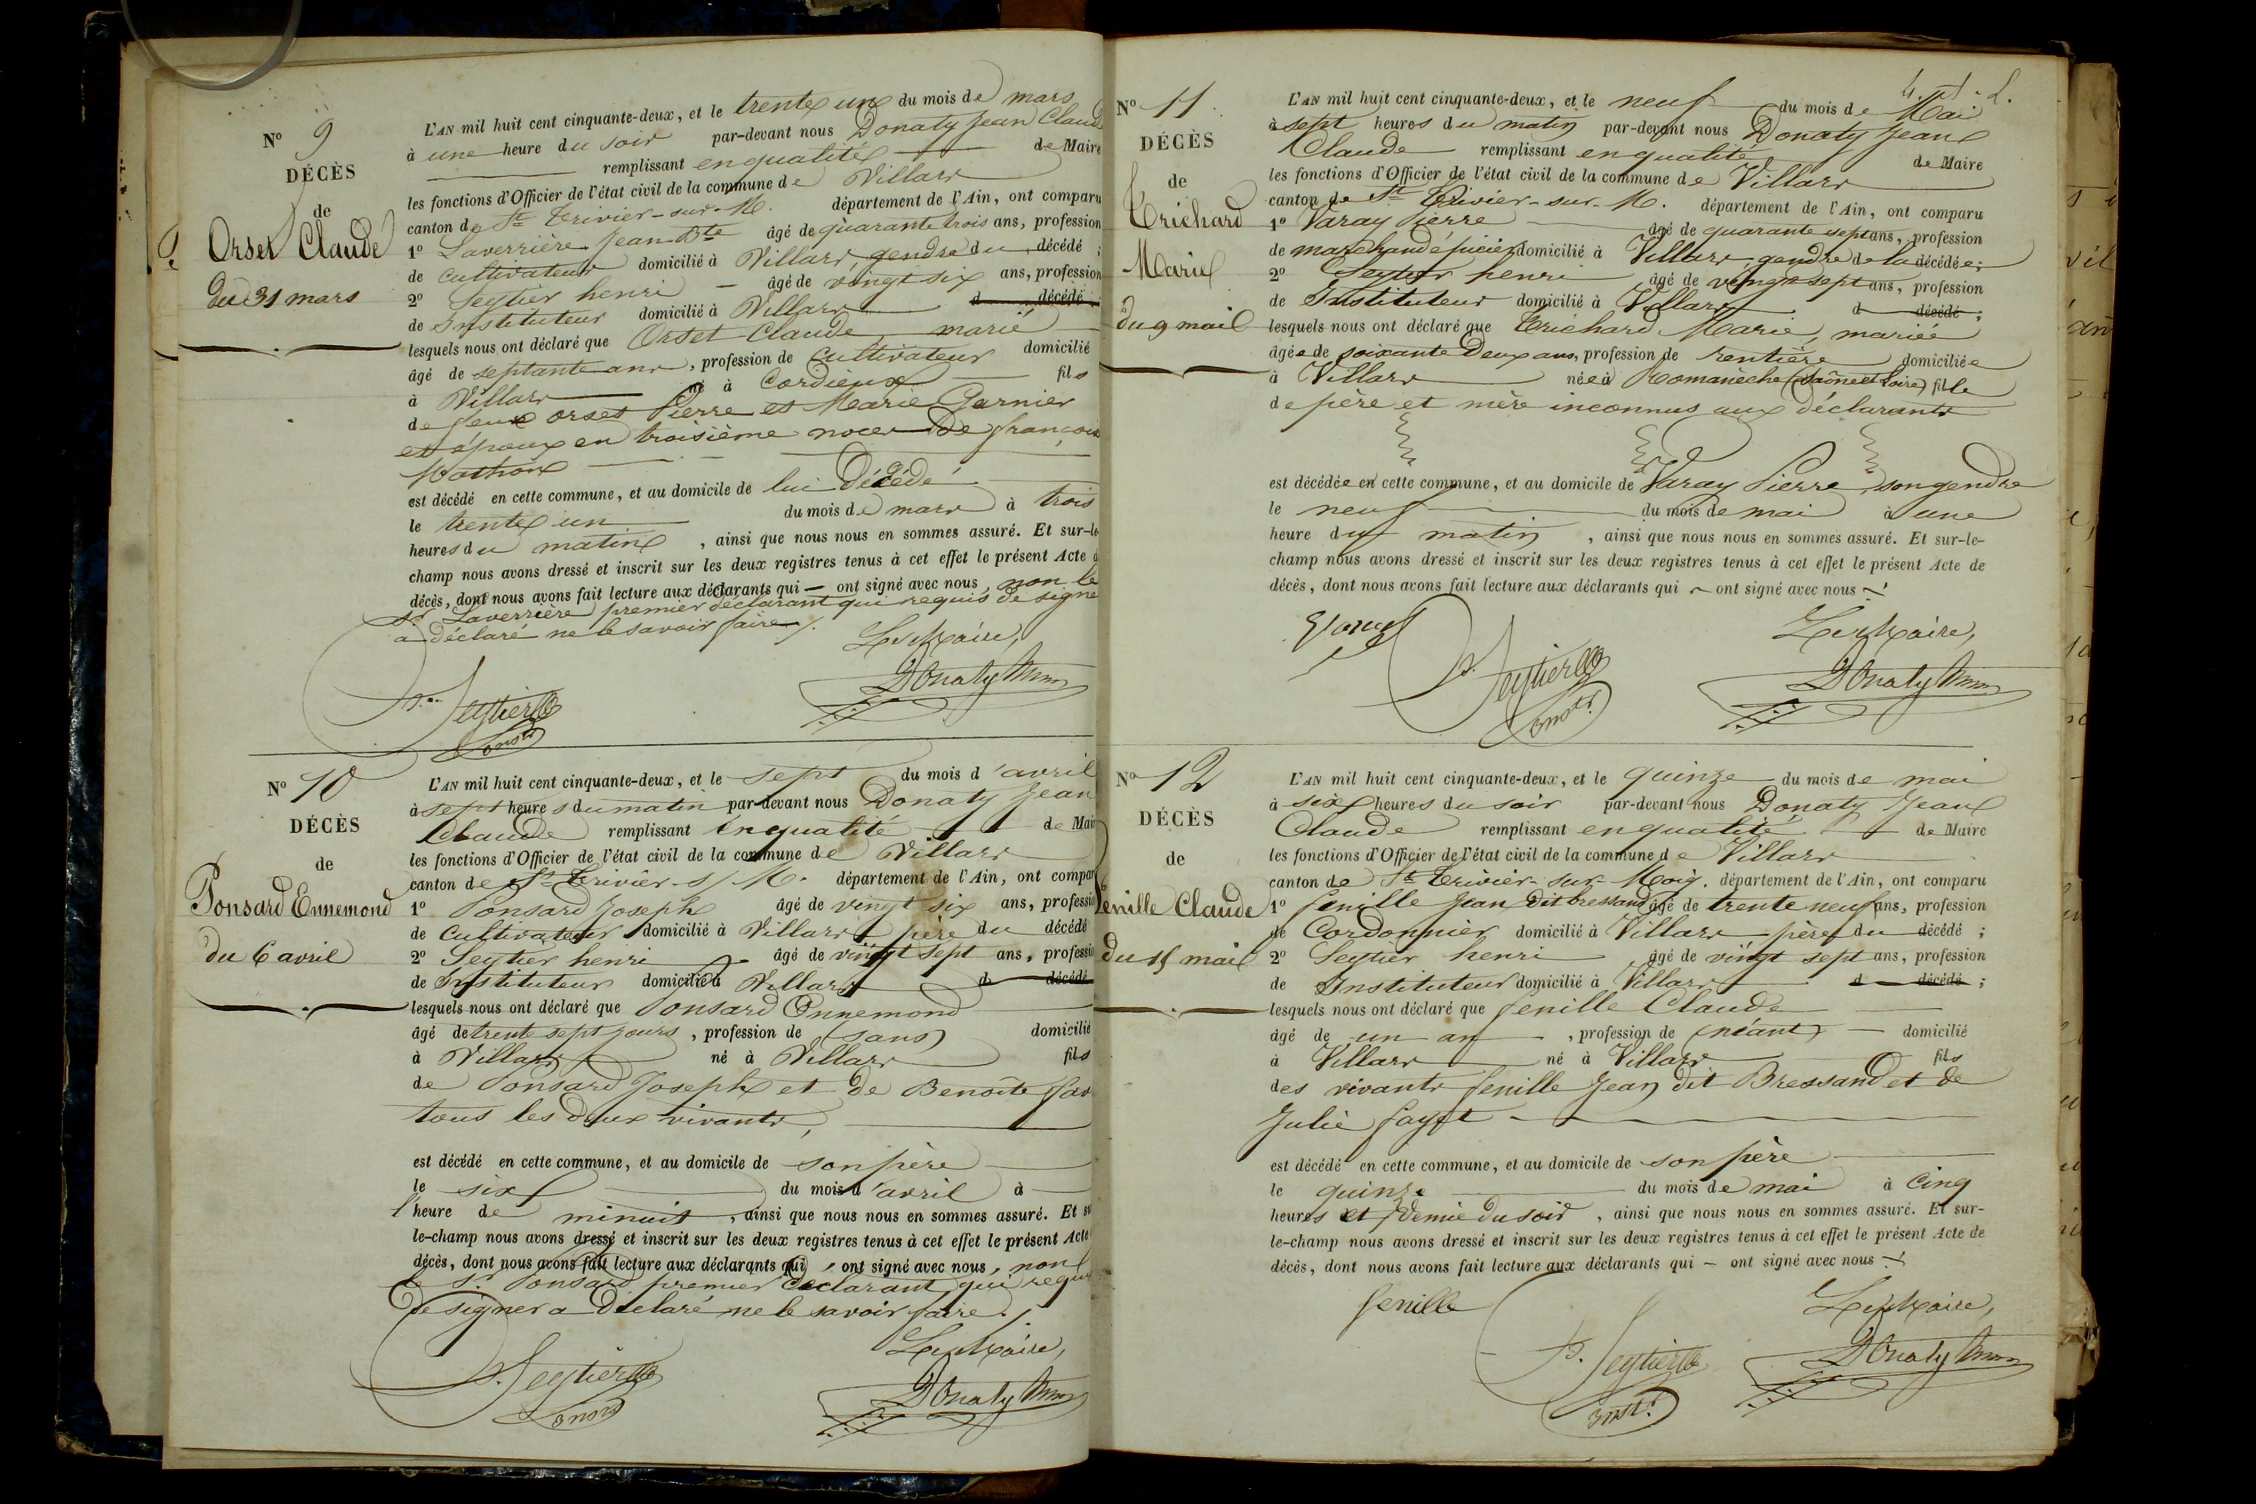 N° 9
DÉCÈS
de
Orset Claude
du 31 mars
L'AN mil huit cent cinquante-deux, et le trente un du mois de mars
à une heure du soir par-devant nous Donaty Jean Claude
remplissant en qualité de Maire
les fonctions d'Officier de l'état civil de la commune de Villars
canton de St Trivier-sur-M. département de l'Ain, ont comparu
1° Laverrière Jean Bte âgé de quarante trois ans, profession
de cultivateur domicilié à Villars gendre du décédé ;
2° Seytier henri âgé de vingt six ans, profession
de Instituteur domicilié à Villars d décédé
lesquels nous ont déclaré que Orset Claude marié
âgé de septante ans, profession de cultivateur domicilié
à Villars né à Cordieux fils
de feux orset Pierre et Marie Garnier
et époux en troisième noces de françoise
Mathon
est décédé en cette commune, et au domicile de lui Décédé
le trente un du mois de mars à trois
heures du matin, ainsi que nous nous en sommes assuré. Et sur-le-
champ nous avons dressé et inscrit sur les deux registres tenus à cet effet le présent Acte de
décès, dont nous avons fait lecture aux déclarants qui — ont signé avec nous, non le
Sr Laverrière premier déclarant qui requis de signer
a déclaré ne le savoir faire ./.
Le Maire,
Seytier
Donaty
N° 10
DÉCÈS
de
Ponsard Ennemond
du 6 avril
L'AN mil huit cent cinquante-deux, et le sept du mois d'avril
à sept heures du matin par-devant nous Donaty Jean
Claude remplissant en qualité de Maire
les fonctions d'Officier de l'état civil de la commune de Villars
canton de St Trivier s/ M. département de l'Ain, ont comparu
1° Ponsard Joseph âgé de vingt six ans, profession
de cultivateur domicilié à Villars père du décédé
2° Seytier henri âgé de vingt sept ans, profession
de Instituteur domicilié à Villars d décédé
lesquels nous ont déclaré que Ponsard Ennemond
âgé de trente sept jours, profession de (sans) domicilié
à Villars né à Villars fils
de Ponsard Joseph et de Benoite
tous les deux vivants,
est décédé en cette commune, et au domicile de son père
le six du mois d'avril à
l'heure de minuit, ainsi que nous nous en sommes assuré. Et sur-
le-champ nous avons dressé et inscrit sur les deux registres tenus à cet effet le présent Acte
décès, dont nous avons fait lecture aux déclarants qui ont signé avec nous, non
le Sr Ponsard premier déclarant qui requis
de signer a déclaré ne le savoir faire ./.
Le Maire,
Seytier
Donaty
N° 11
DÉCÈS
de
Trichard
Marie
du 9 mai
L'AN mil huit cent cinquante-deux, et le neuf du mois de Mai
à sept heures du matin par-devant nous Donaty Jean
Claude remplissant en qualité de Maire
les fonctions d'Officier de l'état civil de la commune de Villars
canton de St Trivier-sur-M. département de l'Ain, ont comparu
1° Varay Pierre âgé de quarante sept ans, profession
de marchand épicier domicilié à Villars gendre de la décédée ;
2° Seytier henri âgé de vingt sept ans, profession
de Instituteur domicilié à Villars d décédé ;
lesquels nous ont déclaré que Trichard Marie, mariée
âgée de soixante deux ans, profession de rentière domiciliée
à Villars née à Romanèche (Saône et Loire) fille
de père et mère inconnus aux déclarants
est décédée en cette commune, et au domicile de Varay Pierre, son gendre
le neuf du mois de mai à une
heure du matin, ainsi que nous nous en sommes assuré. Et sur-le-
champ nous avons dressé et inscrit sur les deux registres tenus à cet effet le présent Acte de
décès, dont nous avons fait lecture aux déclarants qui ont signé avec nous ./.
Le Maire,
Seytier
Donaty
N° 12
DÉCÈS
de
fenille Claude
du 15 mai
L'AN mil huit cent cinquante-deux, et le quinze du mois de mai
à six heures du soir par-devant nous Donaty Jean
Claude remplissant en qualité de Maire
les fonctions d'Officier de l'état civil de la commune de Villars
canton de St Trivier-sur-Moig. département de l'Ain, ont comparu
1° fenille Jean dit bressand âgé de trente neuf ans, profession
de Cordonnier domicilié à Villars père du décédé ;
2° Seytier henri âgé de vingt sept ans, profession
de Instituteur domicilié à Villars d décédé ;
lesquels nous ont déclaré que fenille Claude
âgé de un an, profession de (néant) domicilié
à Villars né à Villars fils
des vivants fenille Jean dit Bressand et de
Julie fayet
est décédé en cette commune, et au domicile de son père
le quinze du mois de mai à cinq
heures et demie du soir, ainsi que nous nous en sommes assuré. Et sur-
le-champ nous avons dressé et inscrit sur les deux registres tenus à cet effet le présent Acte de
décès, dont nous avons fait lecture aux déclarants qui — ont signé avec nous ./.
fenille
Le Maire,
Seytier
instr
Donaty